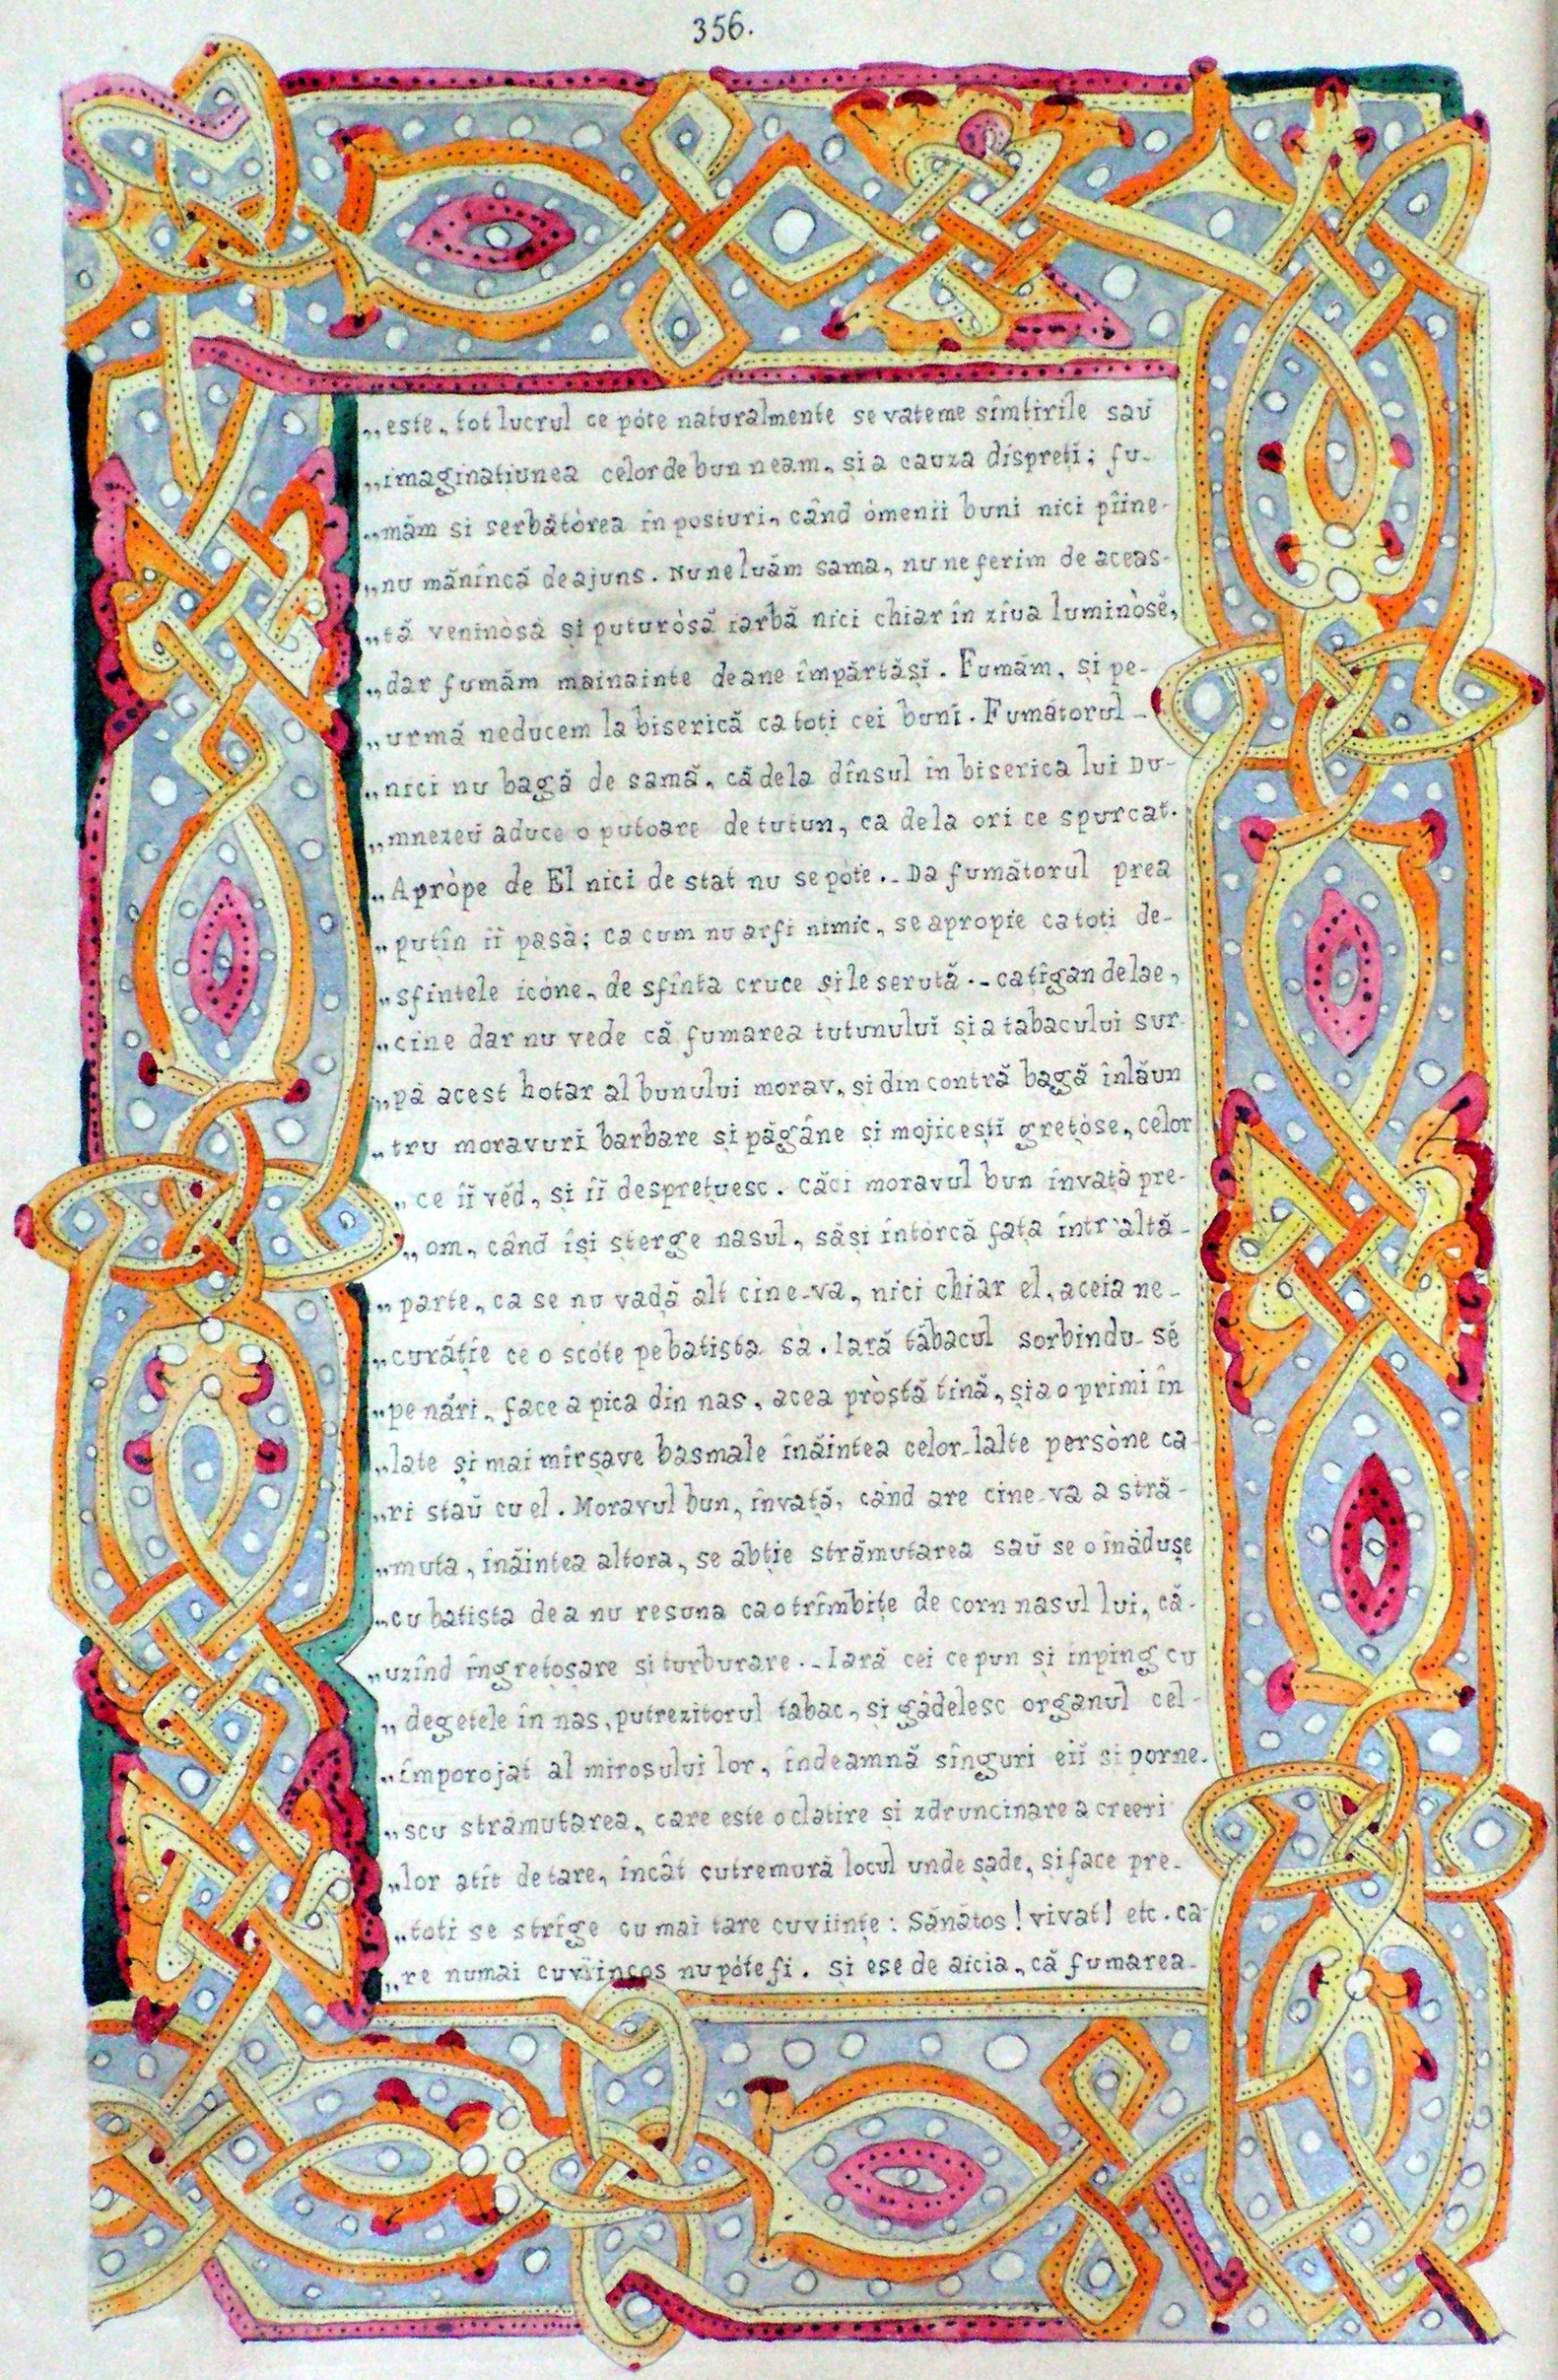 356.
„este, tot lucrul ce póte naturalmente se vateme sîmțirile saŭ
„imaginațiunea celor de bun neam, și a cauza disprețĭ; fu-
„măm si serbătórea în posturi, când ómenii buni nici pîine-
„nu mănîncă deajuns. Nu ne luăm sama, nu ne ferim de aceas-
„tă veninòsă și puturòsă iarbă nici chiar în zĭua luminòsĕ,
„dar fumăm mainainte deane împărtășĭ. Fumăm, și pe-
„urmă neducem la biserică ca toți cei bunĭ. Fumătorul -
„nici nu bagă de samă, că dela dînsul în biserica lui Du-
„mnezeŭ aduce o putoare de tutun, ca dela ori ce spurcat.
„Apròpe de El nici de stat nu se pòte. - Da fumătorul prea
„puțin ĭi pasă; ca cum nu arfi nimic, se apropie ca toți de-
„sfintele icòne, de sfînta cruce și le serută. - ca țîgan delae,
„cine dar nu vede că fumarea tutunuluĭ și a tabacului sur-
„pă acest hotar al bunului morav, și din contră bagă înlăun
„tru moravuri barbare și păgâne și mojiceștĭ grețòse, celor
„ce îĭ vĕd, și îĭ desprețuesc. Căci moravul bun învață pre-
„om, când își sterge nasul, săși întórcă fața într'altă -
„parte, ca se nu vadă alt cine-va, nici chiar el, aceia ne-
„curățíe ce o scòte pe batista sa. Iară tăbacul sorbindu-sĕ
„pe nări, face a pica din nas, acea pròstă tină, și a o primi în
„late și mai mîrșave basmale înăintea celor-lalte persòne ca
„ri staŭ cu el. Moravul bun, învață, când are cine-va a stră-
„muta, înăintea altora, se abție strămutarea saŭ se o înădușe
„cu batista de a nu resuna ca o trîmbițe de corn nasul lui, că-
„uzînd îngrețoșare și turburare. - Iară cei ce pun și inping cu
„degetele în nas, putrezitorul tabac, și gâdelesc organul cel-
„împorojat al mirosului lor, îndeamnă sînguri eiĭ și porne-
„scu strămutarea, care este o clatire și zdruncinare a creeri
„lor atît de tare, încât cutremură locul unde șade, și face pre-
„toți se strîge cu mai tare cuviințe: Sănătos! vivat! etc. ca-
„re numai cuviincos nu póte fi. Și ese de aicia, că fumarea-